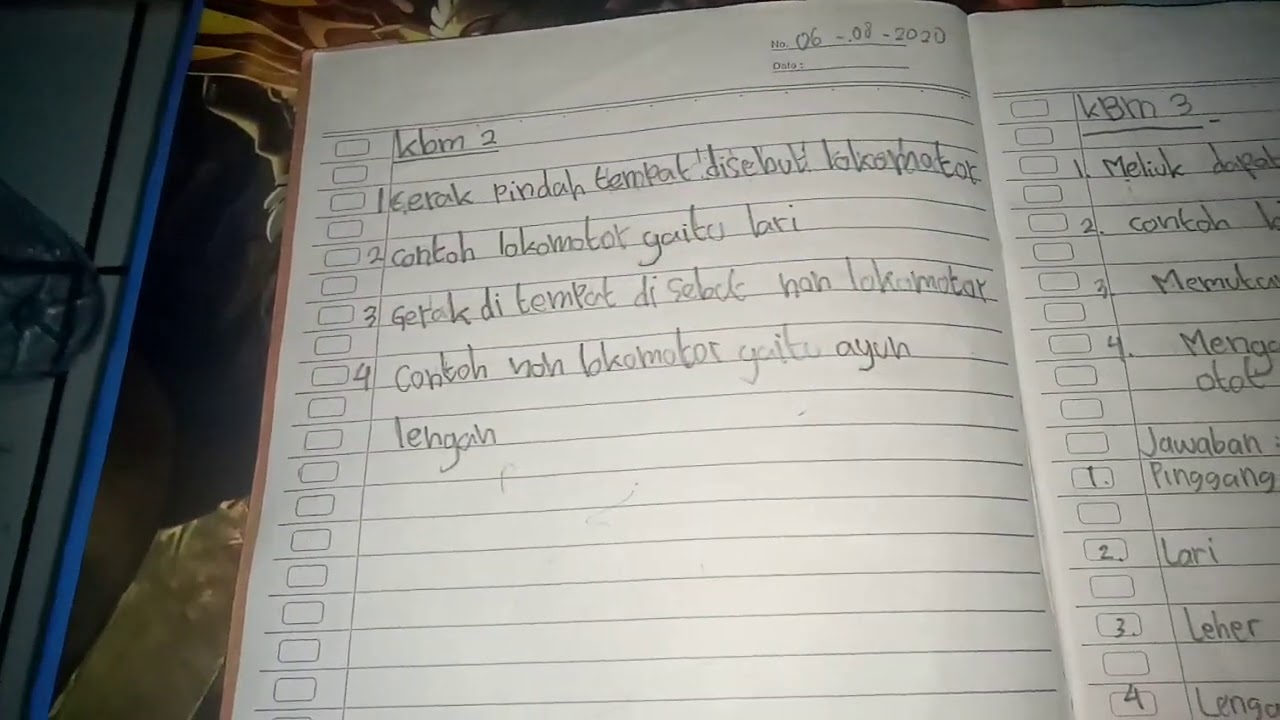 No. 06 - 08 - 2020
Date :
kbm 2
1 Gerak pindah tempat disebut lokomotor
2 contoh lokomotor yaitu lari
3 Gerak di tempat di sebut non lokomotor
4 Contoh non lokomotor yaitu ayun
lengan
KBM 3
1. Meliuk dapat
2. contoh
3
4. Meng
otot
Jawaban :
1. Pinggang
2. Lari
3. Leher
4